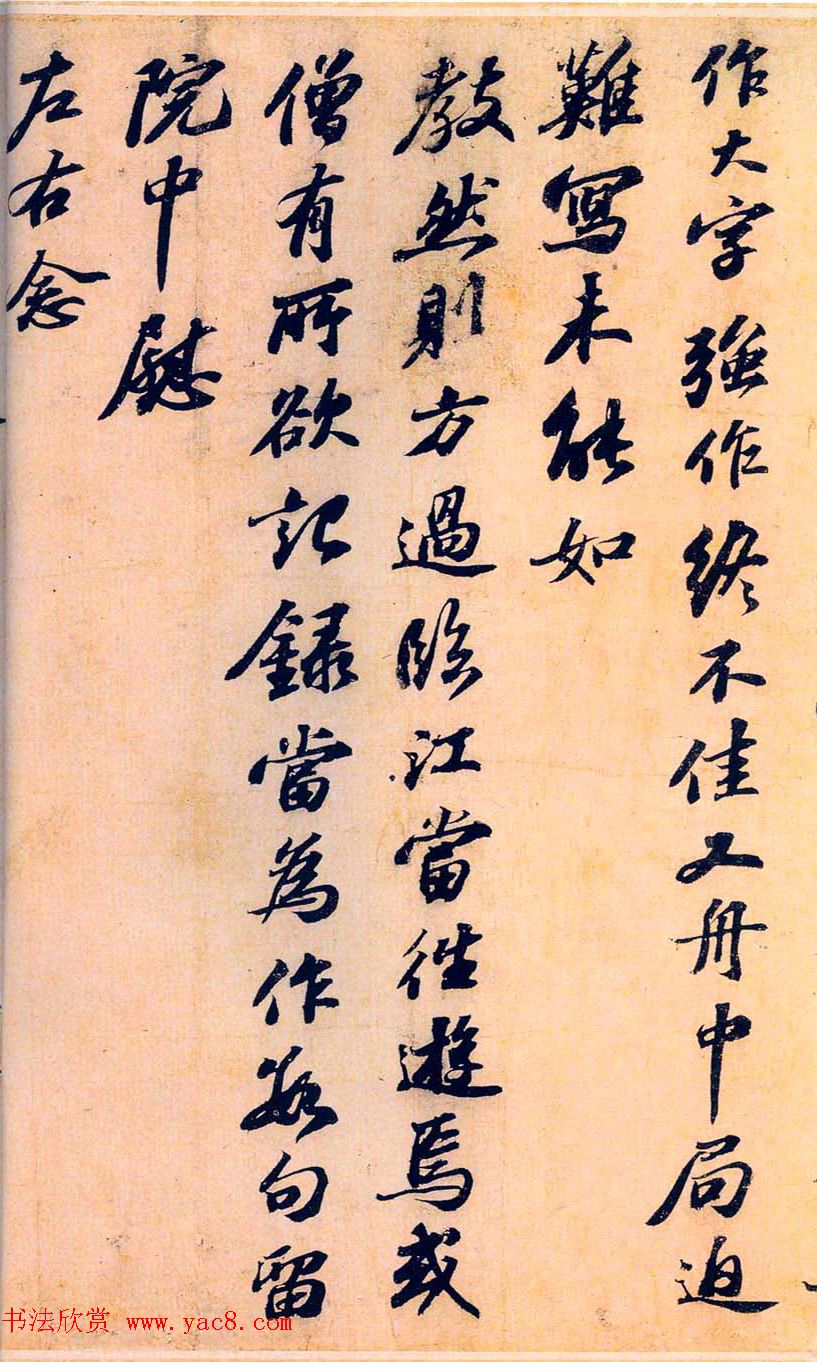 作大字強作終不佳又舟中局迫
難寫未能如
教然則方過臨江當往遊焉或
僧有所欲記録當為作數句留
院中慰
左右念
书法欣赏 www.yac8.com